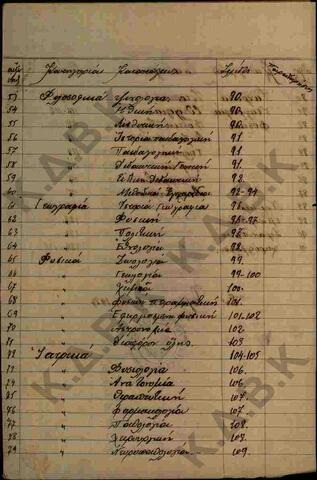 53 Φιλοσοφικά Ψυχολογία 90.
54 " Ηθική 90.
55 " Αισθητική 90.
56 " Ιστορία παιδαγωγική 91
57 " Παιδαγωγική 91.
58 " Διδακτική Γενική 91.
59 " Ειδική Διδακτική 92.
60 92-94
61 Γεωγραφία Ιστορία Γεωγραφία 95.
62 " Φυσική 96-97.
63 " Πολιτική 98-
64 " Εθνολογία 98.
65 Φυσικά Ζωολογία 99.
66 " Γεωλογία 99-100
67 " Χημεία 100.
68 " Φυσική πειραματική 101.
69 " Εφηρμοσμένη φυσική 101-102
70 " Αστρονομία 102.
71 " Διαφόρου ύλης 103
72 Ιατρικά 104-105
73 " Φυσιολογία 106.
74 " Ανατομία 106.
75 " Θεραπευτική 107.
76 " Φαρμακολογία 107.
77 " Παθολογία 108.
78 " Χειρουργική 108.
79 " Νευροπαθολογία 109.
Κ.Δ.Β.Κ